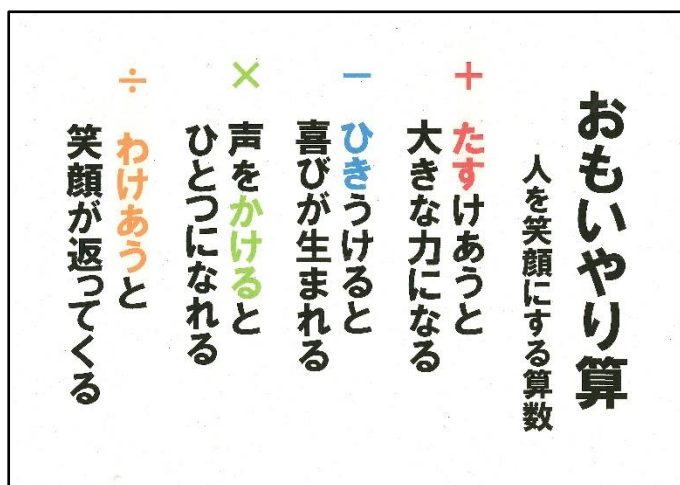 おもいやり算
人を笑顔にする算数
＋ たすけあうと
大きな力になる
－ ひきうけると
喜びが生まれる
× 声をかけると
ひとつになれる
÷ わけあうと
笑顔が返ってくる